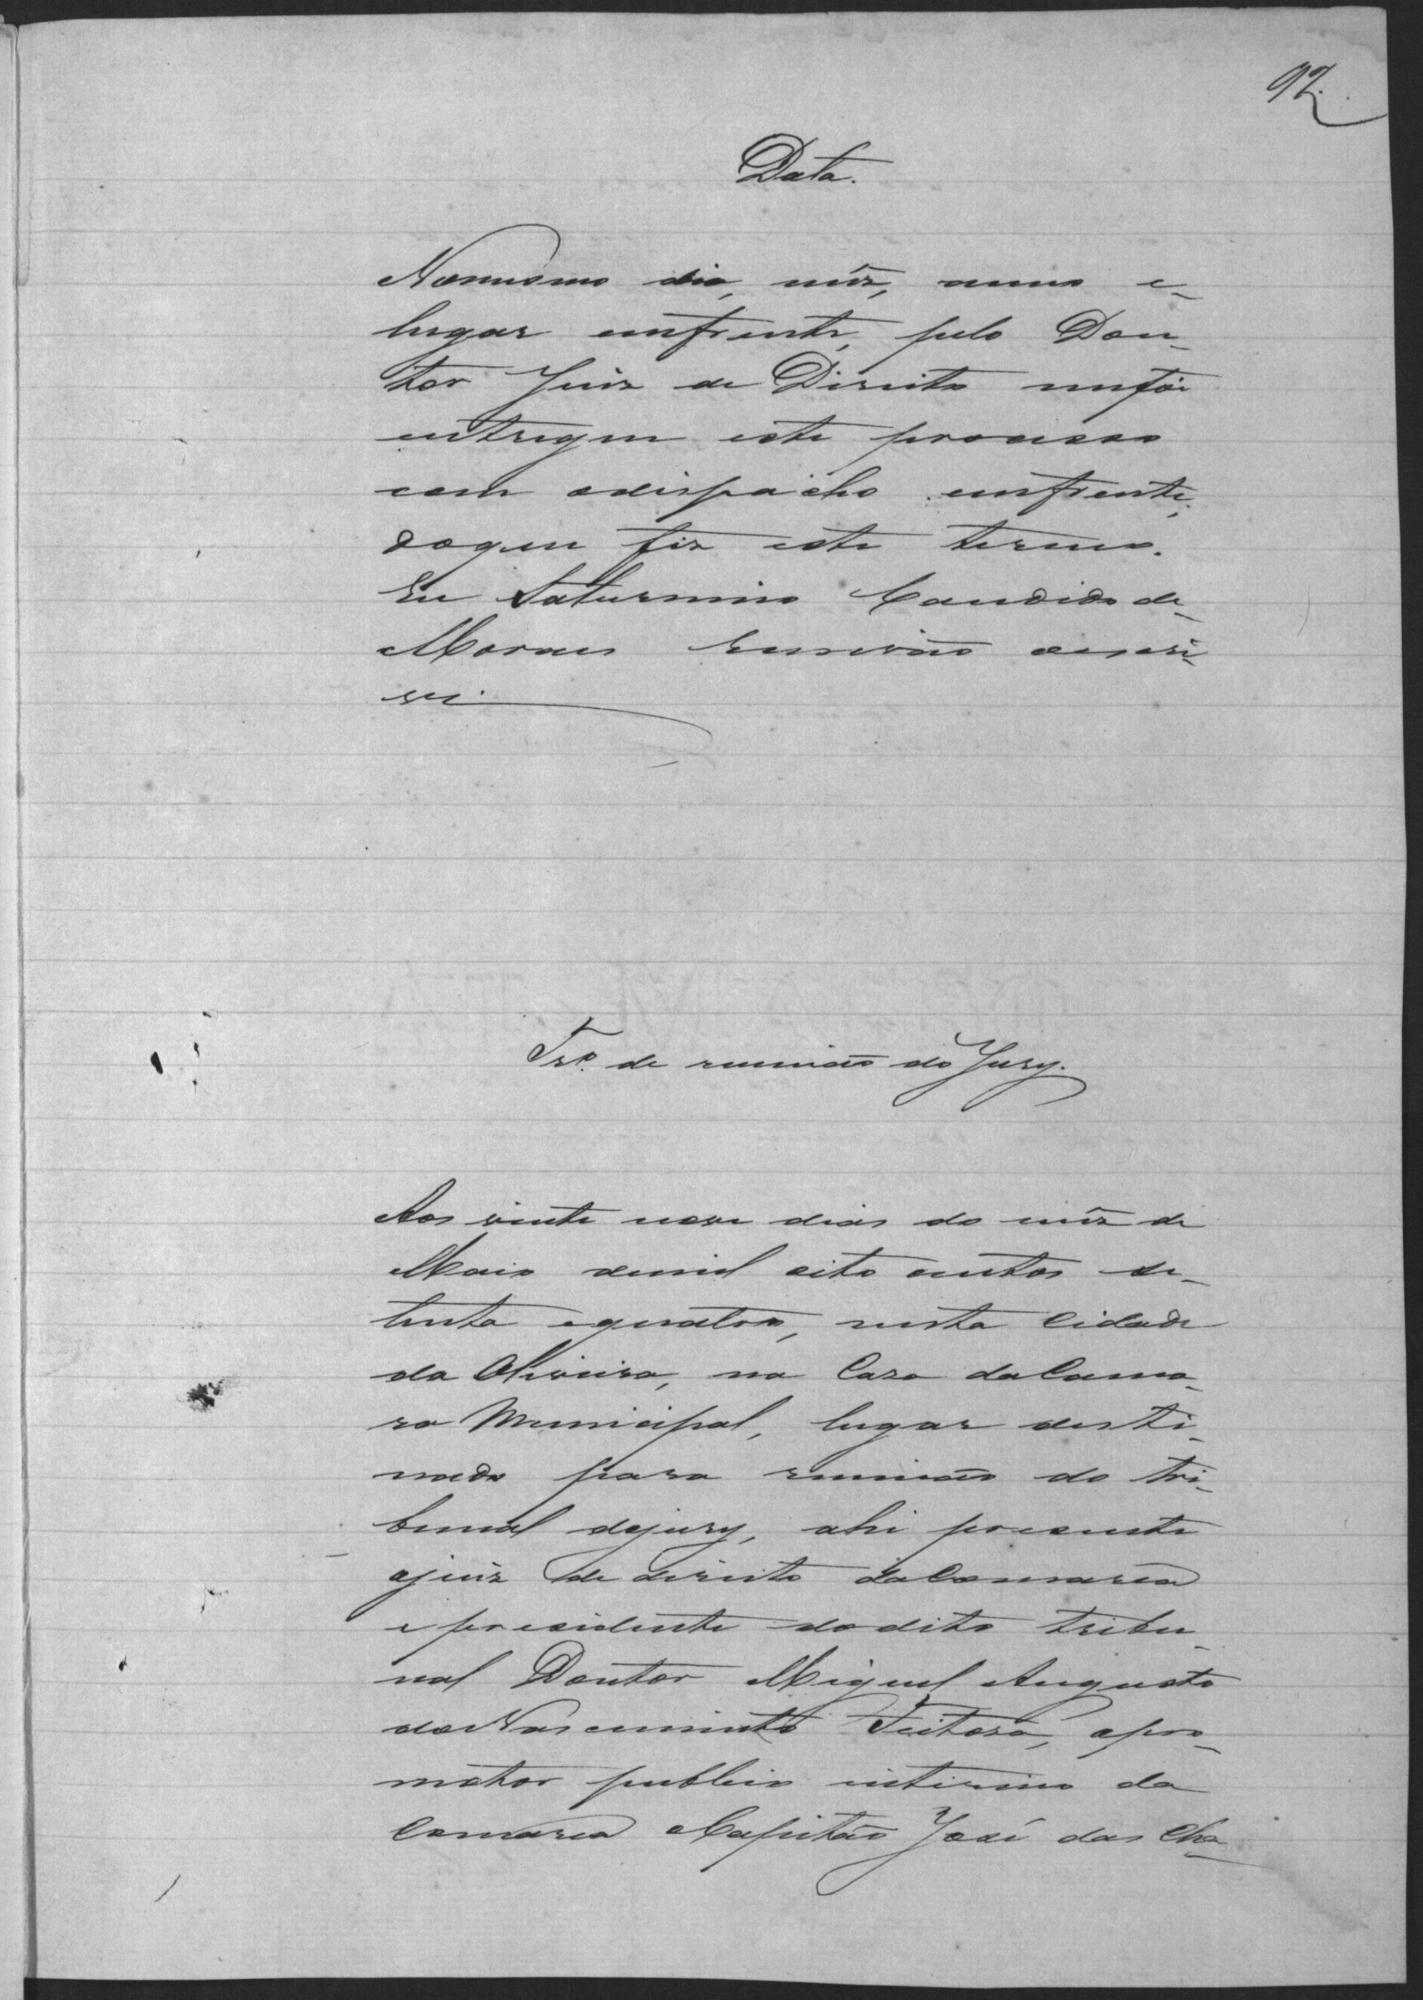 92.
Data.
Nomesmo dia, mêz, anno e
lugar emfrente, pelo Dou-
tor Juiz de Direito mefôi
entregue este processo
com odispacho emfrente,
doque fiz este termo.
Eu Saturnino Candido de
Moraes Escrivão oescri-
vi.
Trº. de reunião do Jury.
Aos vinte nove dias do mêz de
Maio demil oito centos se-
tenta equatro, nesta Cidade
da Oliveira, na Casa daCama-
ra Municipal, lugar desti-
nado para reunião do tri-
bunal dojury, ahi presente
ojuiz de direito daComarca
e presidente dodito tribu-
nal Doutor Miguel Augusto
doNascimento Feitosa, opro-
motor publico interino da
Comarca Capitão José das Cha-